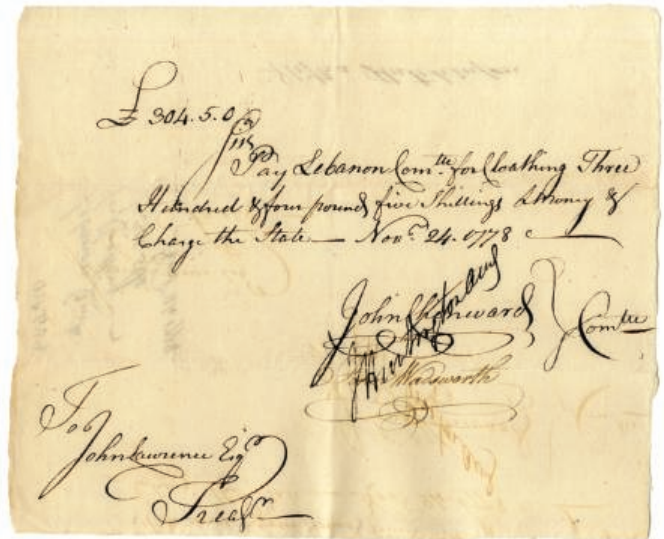 £ 304.5.0
Sir
Pay Lebanon Comtte for Cloathing Three
Hundred & four pounds five Shillings Money &
Charge the State — Novr 24. 1778
John Chenward
Comtte
Wadsworth
To
John Lawrence Esqr
Treasr